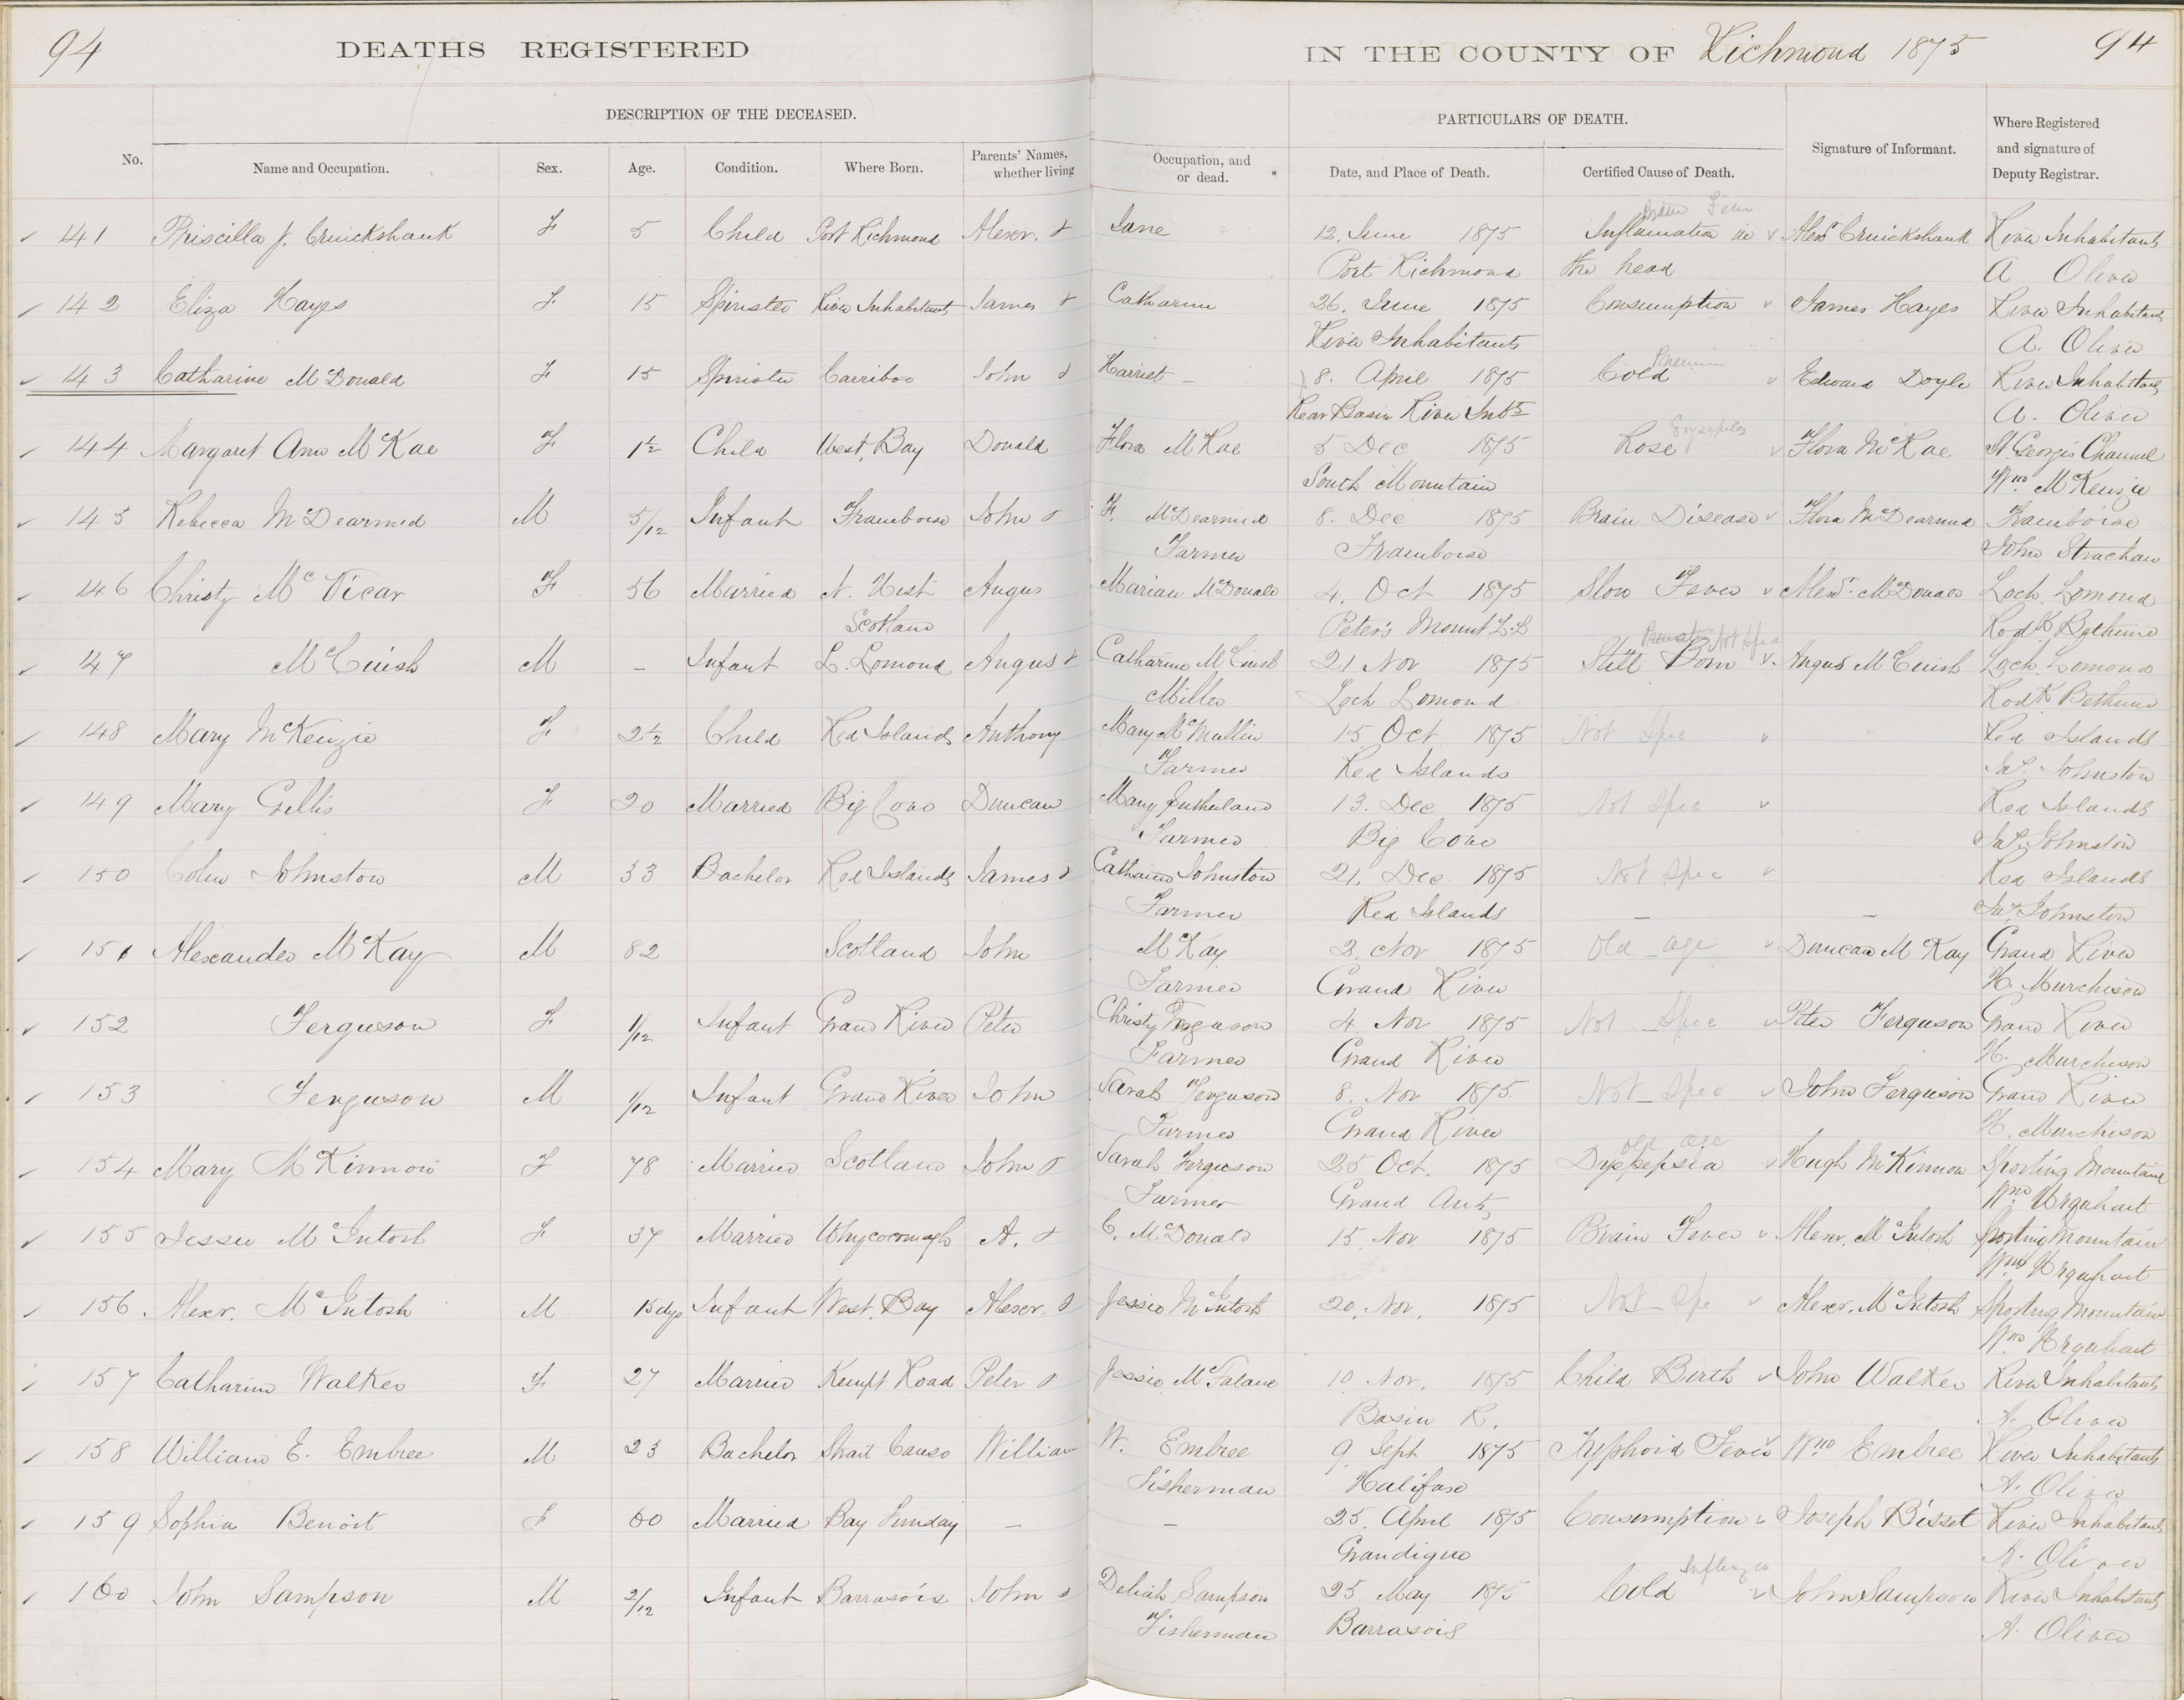 94 DEATHS REGISTERED IN THE COUNTY OF Richmond 1875 94
DESCRIPTION OF THE DECEASED. PARTICULARS OF DEATH. Where Registered and signature of Deputy Registrar.
No. Name and Occupation. Sex. Age. Condition. Where Born. Parents' Names, whether living Occupation, and or dead. * Date, and Place of Death. Certified Cause of Death. Signature of Informant.
Brain Fever
141 Priscilla J. Cruickshank F 5 Child Port Richmond Alexr. & Jane 12. June 1875 Inflamation in Alexr Cruickshank River Inhabitants
Port Richmond the head A Oliver
142 Eliza Hayes F 15 Spinster River Inhabitants James & Catharine 26. June 1875 Consumption James Hayes River Inhabitants
River Inhabitants A. Oliver
143 Catharine McDonald F 15 Spinster Carriboo John & Harriet 8. April 1875 Cold Edward Doyle River Inhabitants
Rear Basin River Inbts A. Oliver
Erysipelas
144 Margaret Ann McRae F 1½ Child West Bay Donald Flora McRae 5 Dec 1875 Rose Flora McRae St. Georges Channel
South Mountain Wm McKenzie
145 Rebecca McDearmid M 5/12 Infant Framboise John & F. McDearmid 8. Dec 1875 Brain Disease Flora McDearmid Framboise
Farmer Framboise John Strachan
146 Christy McVicar F 56 Married N. Uist Angus Marian McDonald 4. Oct 1875 Slow Fever Alexr. McDonald Loch Lomond
Scotland Peter's Mount L.L Rodk Bethune
Not Spec
147 McCuish M – Infant L. Lomond Angus & Catharine McCuish 21 Nov 1875 Still Born Angus McCuish Loch Lomond
Miller Loch Lomond Rodk Bethune
148 Mary McKenzie F 2½ Child Red Islands Anthony Mary McMullin 15 Oct 1875 Not Spec Red Islands
Farmer Red Islands Jas. Johnston
149 Mary Gillis F 20 Married Big Cove Duncan Mary Sutherland 13. Dec 1875 Not Spec Red Islands
Farmer Big Cove Jas. Johnston
150 Colin Johnston M 33 Bachelor Red Islands James & Catharine Johnston 21. Dec. 1875 Not Spec Red Islands
Farmer Red Islands – – Jas. Johnston
151 Alexander McKay M 82 Scotland John McKay 2. Nov 1875 Old age Duncan McKay Grand River
Farmer Grand River H. Murchison
152 Ferguson F 1/12 Infant Grand River Peter Christy Ferguson 4. Nov 1875 Not Spec Peter Ferguson Grand River
Farmer Grand River H. Murchison
153 Ferguson M 1/12 Infant Grand River John Sarah Ferguson 8. Nov 1875. Not Spec John Ferguson Grand River
Farmer Grand River H. Murchison
old age
154 Mary McKinnon F 78 Married Scotland John & Sarah Ferguson 25 Oct. 1875 Dyspepsia Hugh McKinnon Sporting Mountain
Farmer Grand Ants Wm Urquhart
155 Jessie McIntosh F 37 Married Whycocomagh A. & C. McDonald 15 Nov 1875 Brain Fever Alexr. McIntosh Sporting Mountain
Wm Urquhart
156 Alexr. McIntosh M 15 dys Infant West Bay Alexr. & Jessie McIntosh 20. Nov. 1875 Not Spe Alexr. McIntosh Sporting Mountain
Wm Urquhart
157 Catharine Walker F 27 Married Kempt Road Peter & Jessie McFalane 10. Nov. 1875 Child Birth John Walker River Inhabitants
Basin R. A. Oliver
158 William E. Embree M 23 Bachelor Strait Canso William W. Embree 9 Sept 1875 Typhoid Fever Wm Embree River Inhabitants
Fisherman Halifax A. Oliver
159 Sophia Benoit F 60 Married Bay Funday – – 25. April 1875 Consumption Joseph Bisset River Inhabitants
Grandique A. Oliver
Influenza
160 John Sampson M 2/12 Infant Barrasois John & Deliah Sampson 25. May 1875 Cold John Sampson River Inhabitants
Fisherman Barrasois A. Oliver